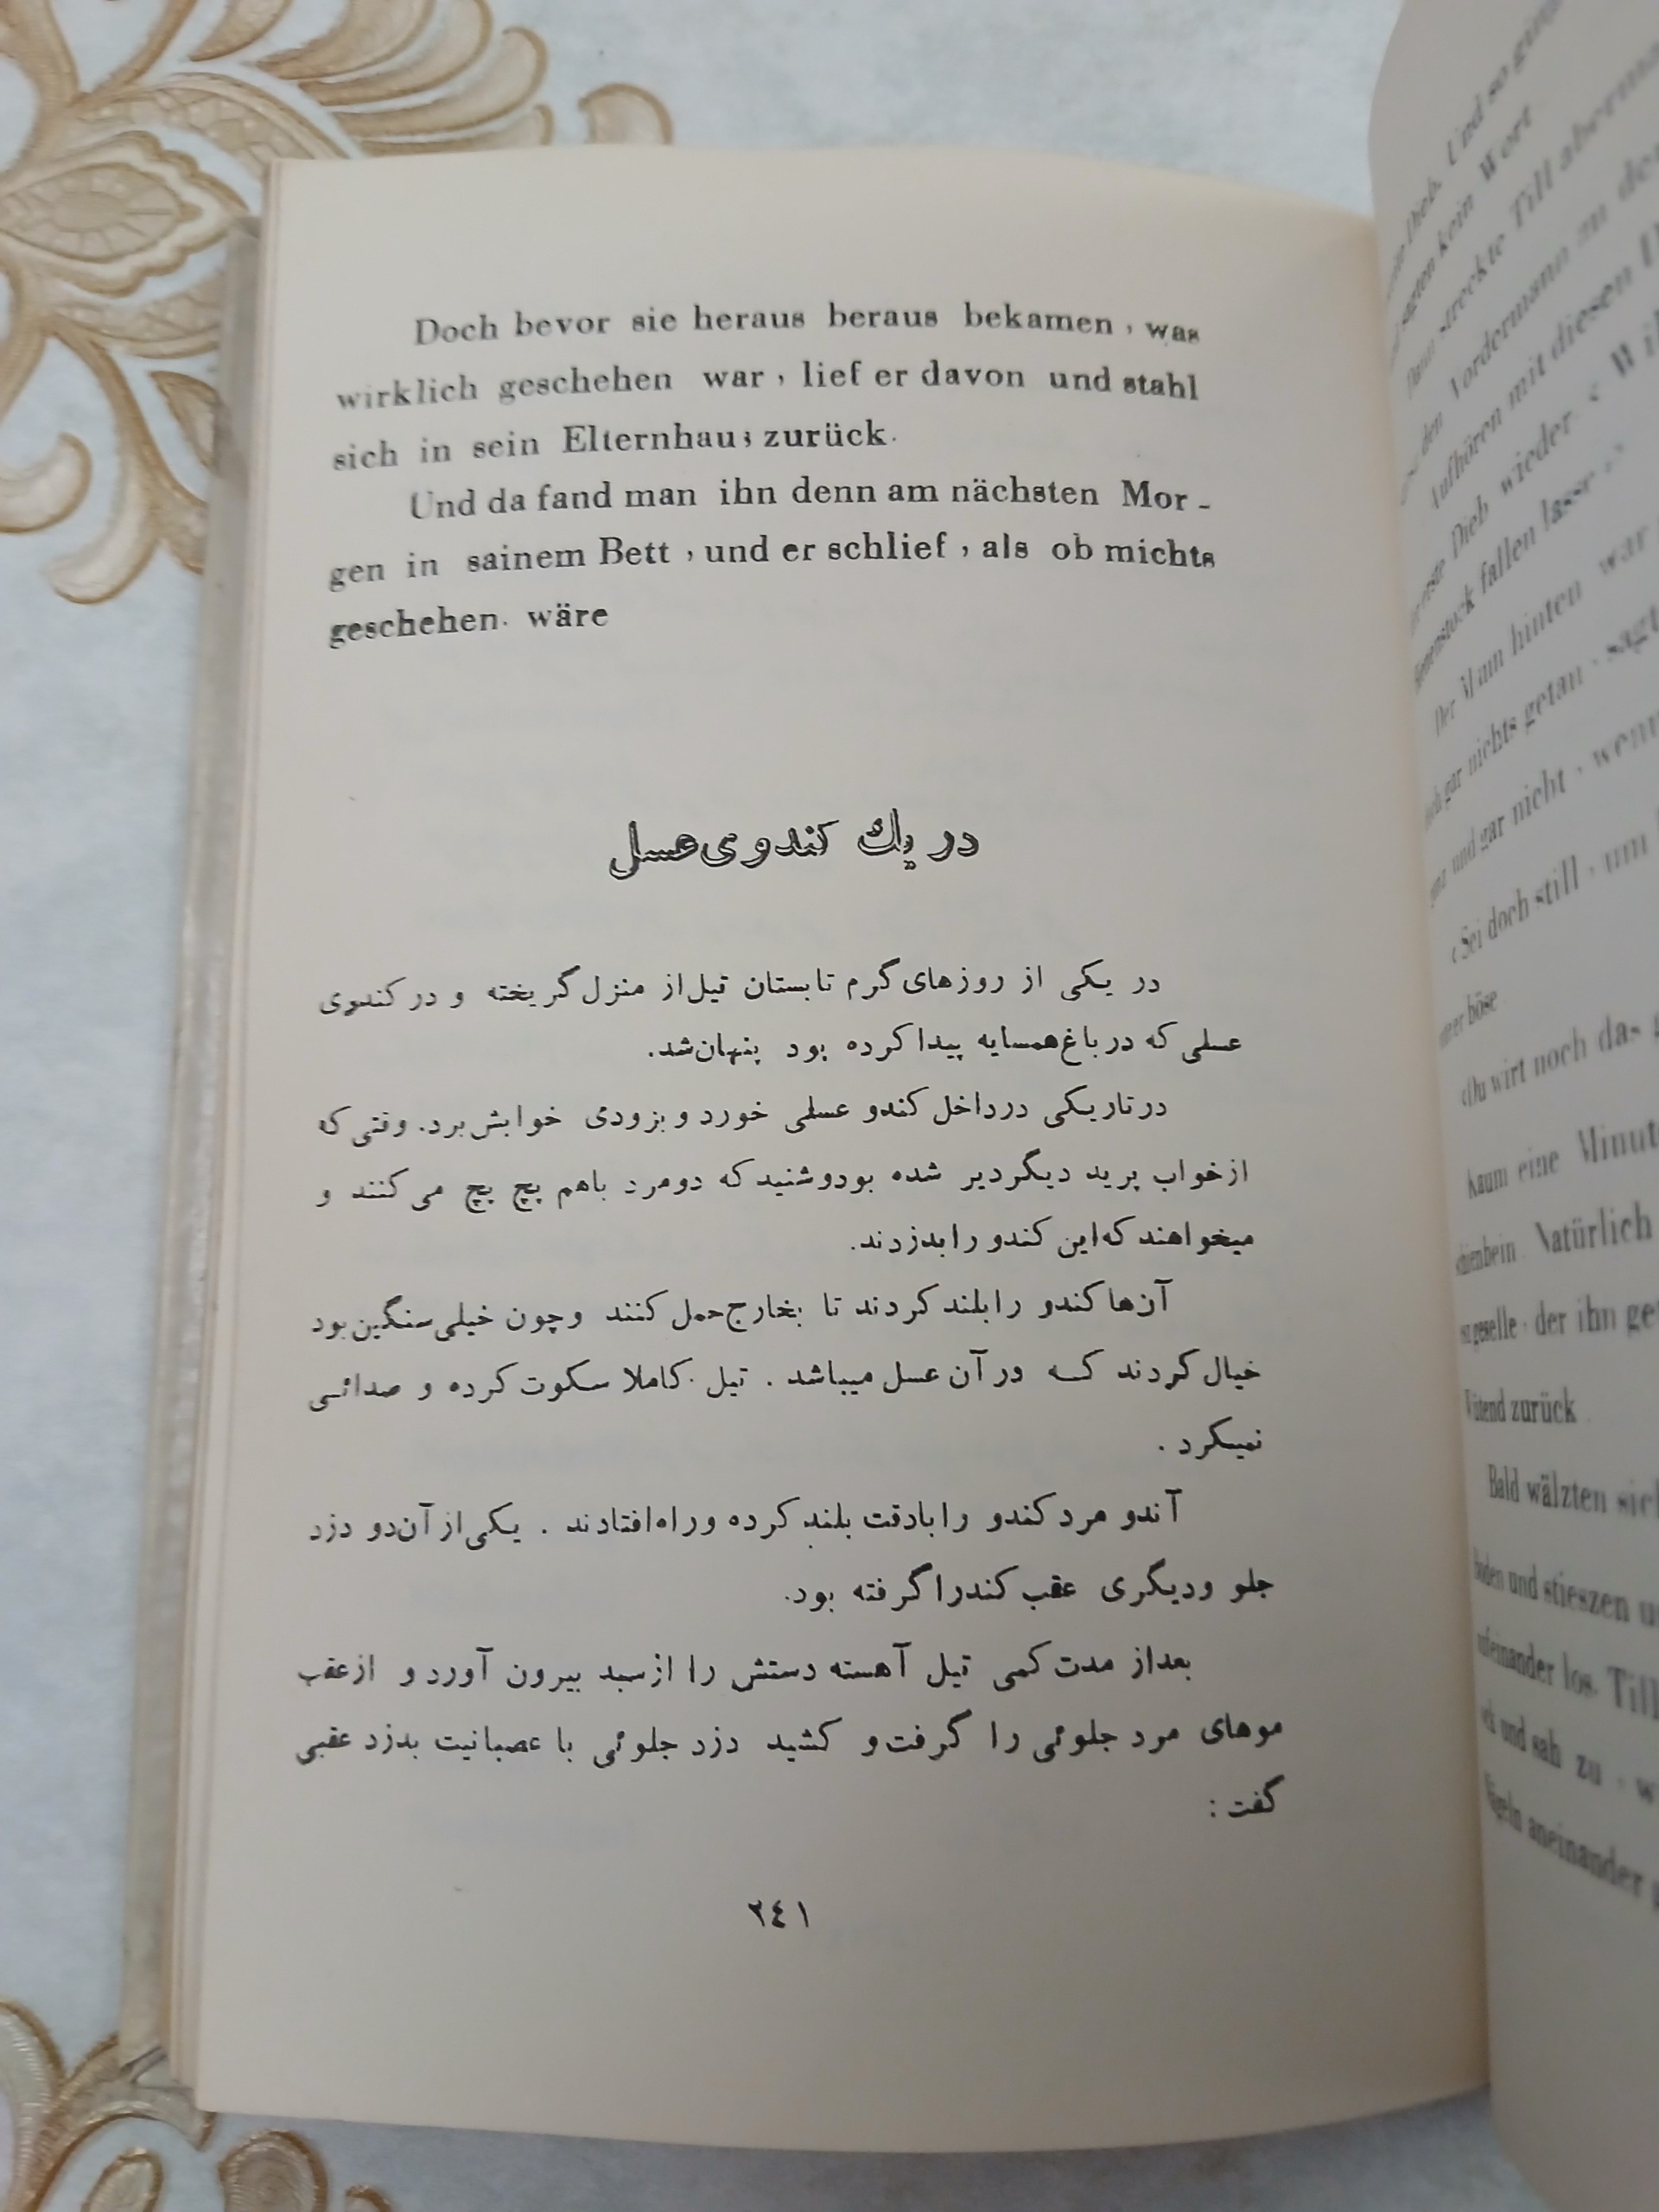 Doch bevor sie heraus beraus bekamen , was
wirklich geschehen war , lief er davon und stahl
sich in sein Elternhaus zurück.
Und da fand man ihn denn am nächsten Mor -
gen in sainem Bett , und er schlief , als ob michts
geschehen. wäre
در یك کندوی عسل
در یکی از روزهای گرم تابستان تیل از منزل گریخته و در کندوی
عسلی که در باغ همسایه پیدا کرده بود پنهان شد.
در تاریکی در داخل کندو عسلی خورد و بزودی خوابش برد. وقتی که
از خواب پرید دیگر دیر شده بود و شنید که دو مرد باهم پچ پچ می کنند و
میخواهند که این کندو را بدزدند.
آن‌ها کندو را بلند کردند تا بخارج حمل کنند و چون خیلی سنگین بود
خیال کردند کــه در آن عسل میباشد . تیل . کاملا سکوت کرده و صدائــی
نمیکرد .
آندو مرد کندو را بادقت بلند کرده و راه افتادند . یکی از آن دو دزد
جلو و دیگری عقب کندرا گرفته بود.
بعد از مدت کمی تیل آهسته دستش را از سبد بیرون آورد و از عقب
موهای مرد جلوئی را گرفت و کشید دزد جلوئی با عصبانیت بدزد عقبی
گفت :
٢٤١
Und so
kein Wort
Till
Vordermann zu
Aufhören mit diesen
Dieb wieder.
fallen
Der Mann hinten war
gar nichts getan , sagt
und gar nicht , wenn
Sei doch still , um
böse
Du wirt noch das
Kaum eine Minut
Natürlich
geselle , der ihn ge
Wütend zurück
Bald wälzten sich
boden und stieszen u
los. Till
und sah zu , w
Vögeln aneinander